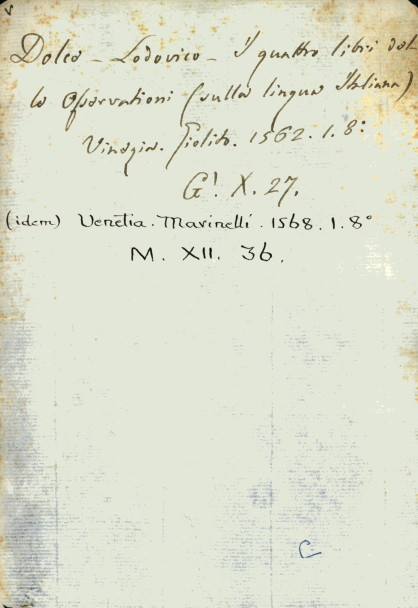 v
Dolce - Lodovico - I quattro libri del
le Osservationi (sulla lingua Italiana)
Vinegia. Giolito. 1562. 1. 8:
G! X. 27.
(idem) Venetia. Marinelli. 1568. 1. 8°
M. XII. 36.
C